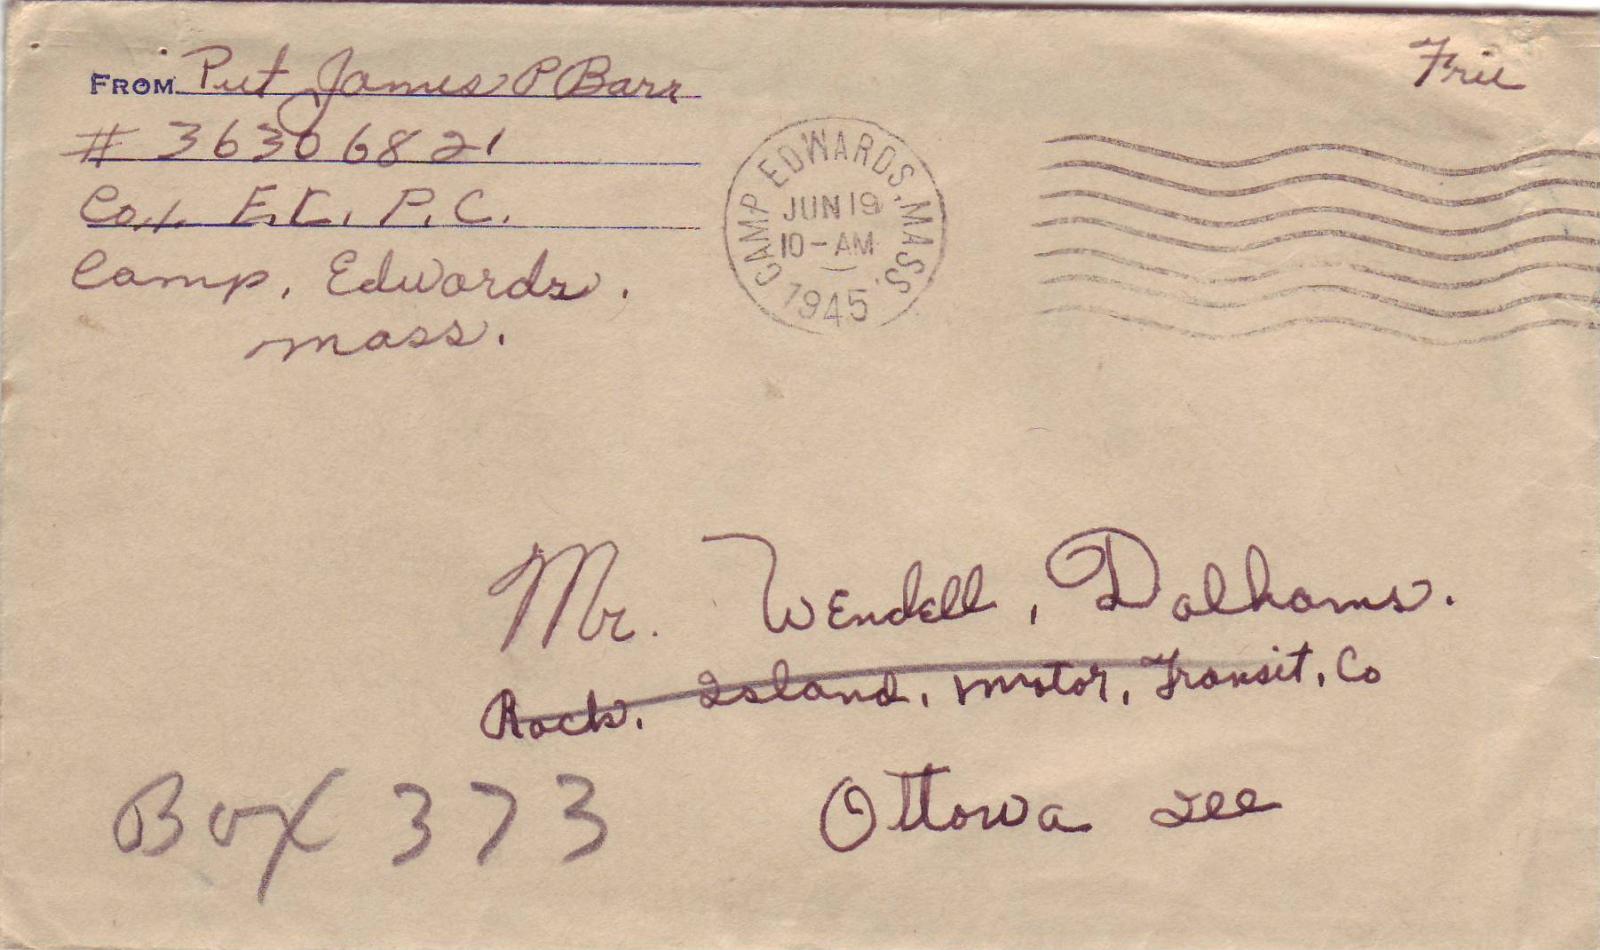 FROM Pvt James P Barr
# 36306821
Co. 1. E.T. P.C.
Camp, Edwards.
Mass.
Free
CAMP EDWARDS, MASS.
JUN 19
10-AM
1945
Mr. Wendell, Dalhams.
Rock. Island, Motor, Transit, Co
Box 373
Ottowa Ill